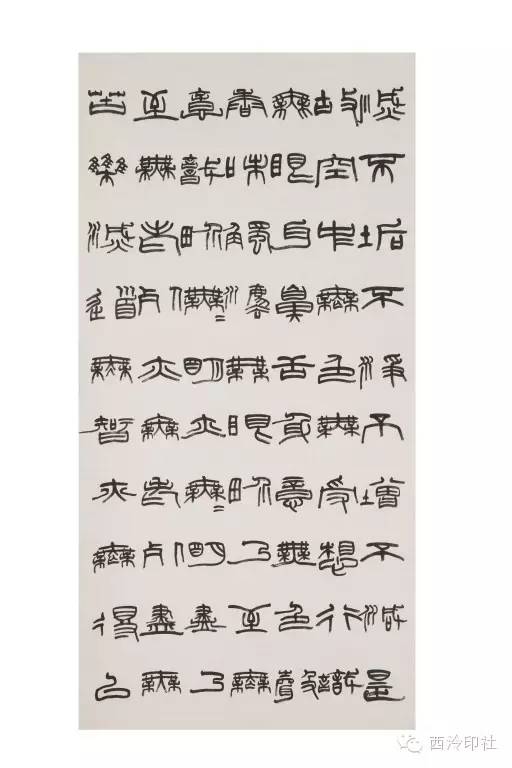 滅不垢不淨不增不減是
故空中無色無受想行識
無眼耳鼻舌身意無色聲
香味觸法無眼界乃至無
意識界無〻明亦無〻明盡乃
至無老死亦無老死盡無
苦集滅道無智亦無得以
西泠印社